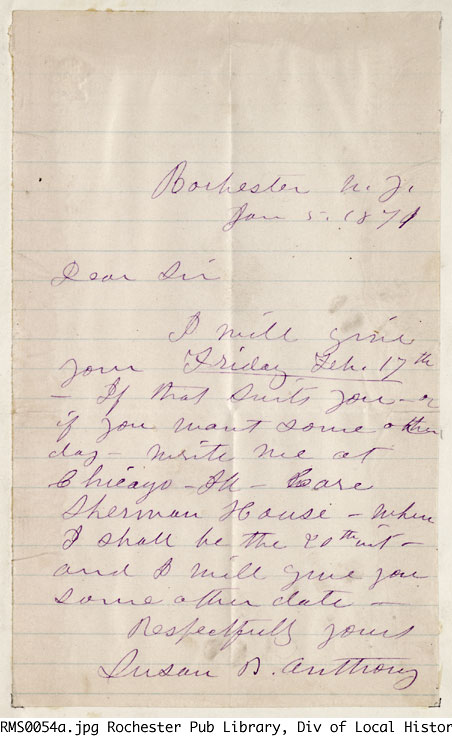 Rochester N.Y.
Jan 5. 1871
Dear Sir
I will give
you Friday Feb. 17th
- If that suits you - or
if you want some other
day - write me at
Chicago - Ill - Care
Sherman House - when
I shall be the 20th inst -
and I will give you
some other date -
Respectfully yours
Susan B. Anthony
RMS0054a.jpg Rochester Pub Library, Div of Local Histor